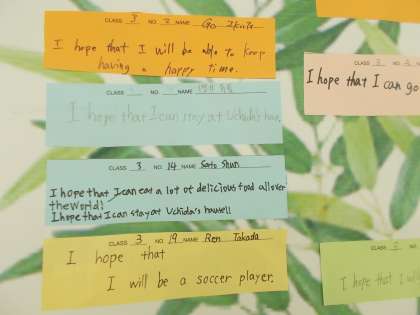 CLASS 3 NO. 2 NAME Go
I hope that I will be able to keep
having a happy time.
CLASS NO. NAME
I hope that I can stay at Uchida's house.
CLASS 3 NO. 14 NAME Sato Shun
I hope that I can eat a lot of delicious food all over
the world!
I hope that I can stay at Uchida's house!!
CLASS 3 NO. 19 NAME Ren Takada
I hope that
I will be a soccer player.
CLASS NO.
I hope that I can go
CLASS NO.
I hope that I will